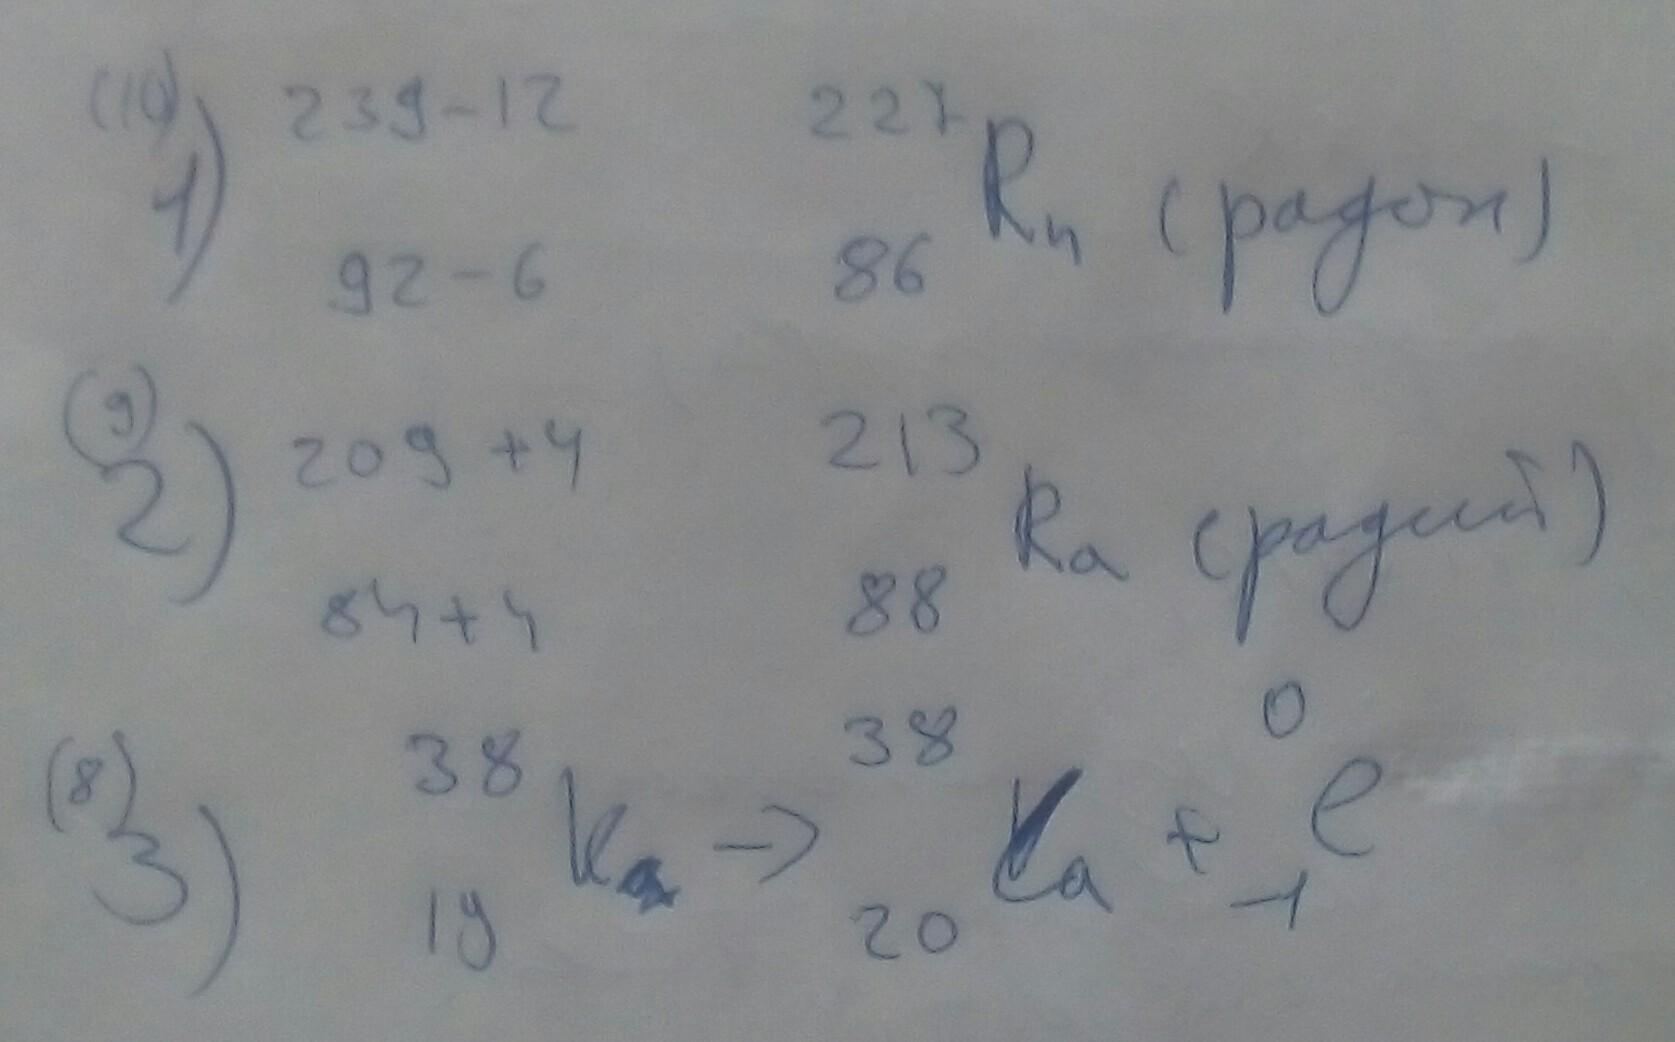 (10)
1) 239-12 227
92-6 86 Rn (радон)
(9)
2) 209+4 213
84+4 88 Ra (радий)
(8)
3) 38 K → 38 Ca + 0 e
19 20 -1